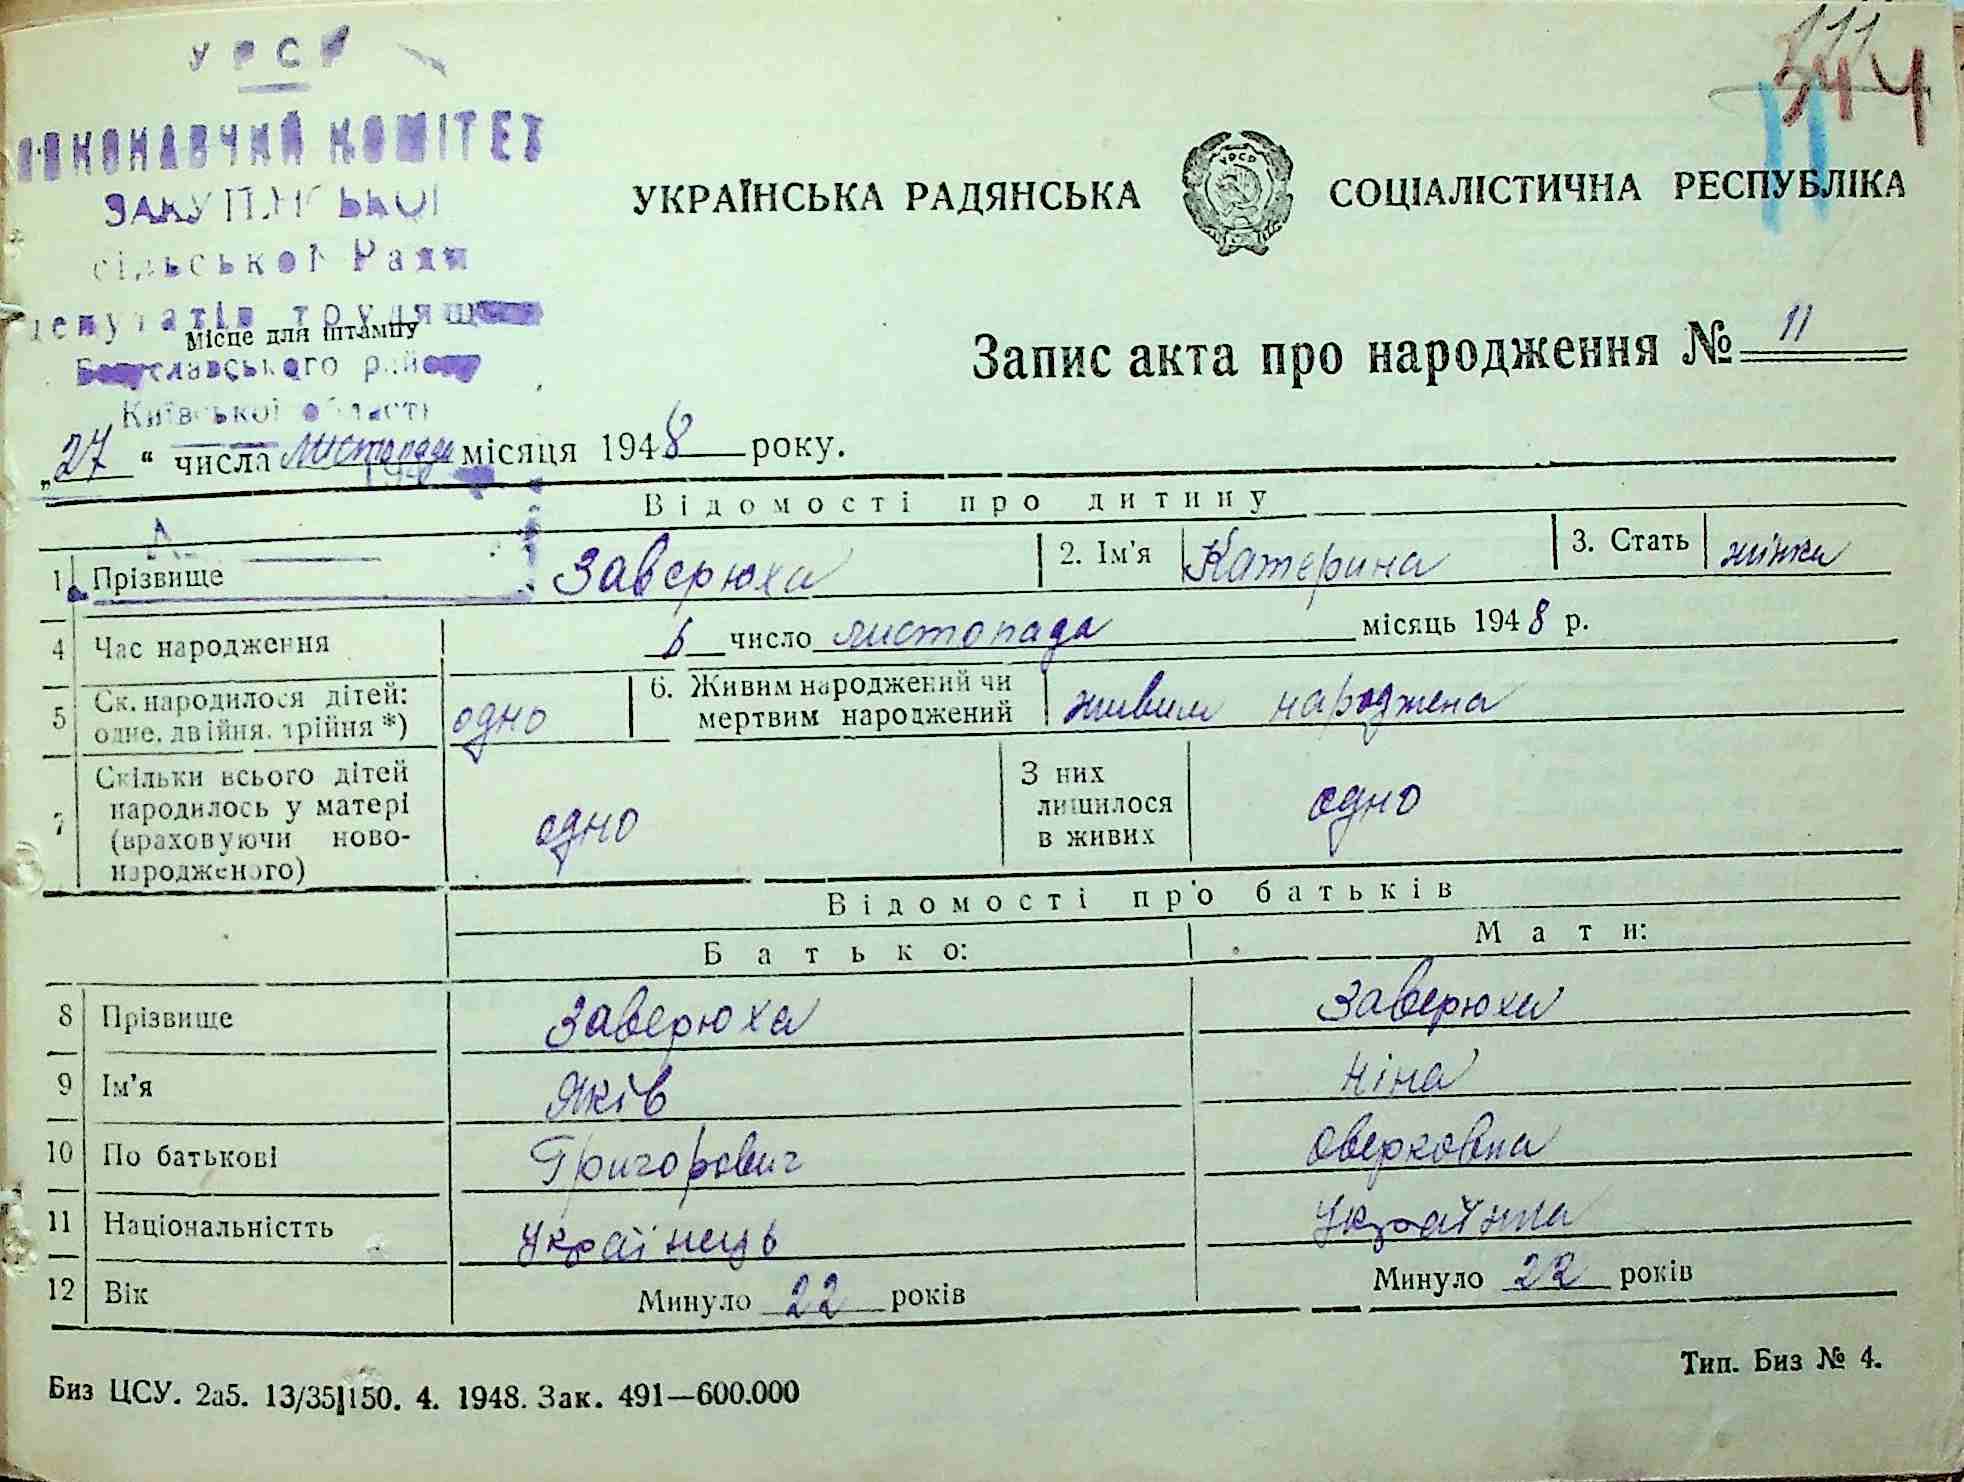 УРСР
ВИКОНАВЧИЙ КОМІТЕТ
сільської Ради
депутатів трудящ
Місце для штампу
Богуславського району
Київської області
111
344
11
УКРАЇНСЬКА РАДЯНСЬКА СОЦІАЛІСТИЧНА РЕСПУБЛІКА
УРСР
Запис акта про народження № 11
„27“ числа листопада місяця 1948 року.
Відомості про дитину
1 Прізвище Заверюха 2. Ім'я Катерина 3. Стать жінка
4 Час народження 6 число листопада місяць 1948 р.
5 Ск. народилося дітей: одне, двійня, трійня *) одно 6. Живим народжений чи мертвим народжений живим народжена
7 Скільки всього дітей народилось у матері (враховуючи ново-народженого) одно З них лишилося в живих одно
Відомості про батьків
Батько: Мати:
8 Прізвище Заверюха Заверюха
9 Ім'я Яків Ніна
10 По батькові Григорович Оверковна
11 Національністть Українець Українка
12 Вік Минуло 22 років Минуло 22 років
Биз ЦСУ. 2а5. 13/35 150. 4. 1948. Зак. 491—600.000
Тип. Биз № 4.